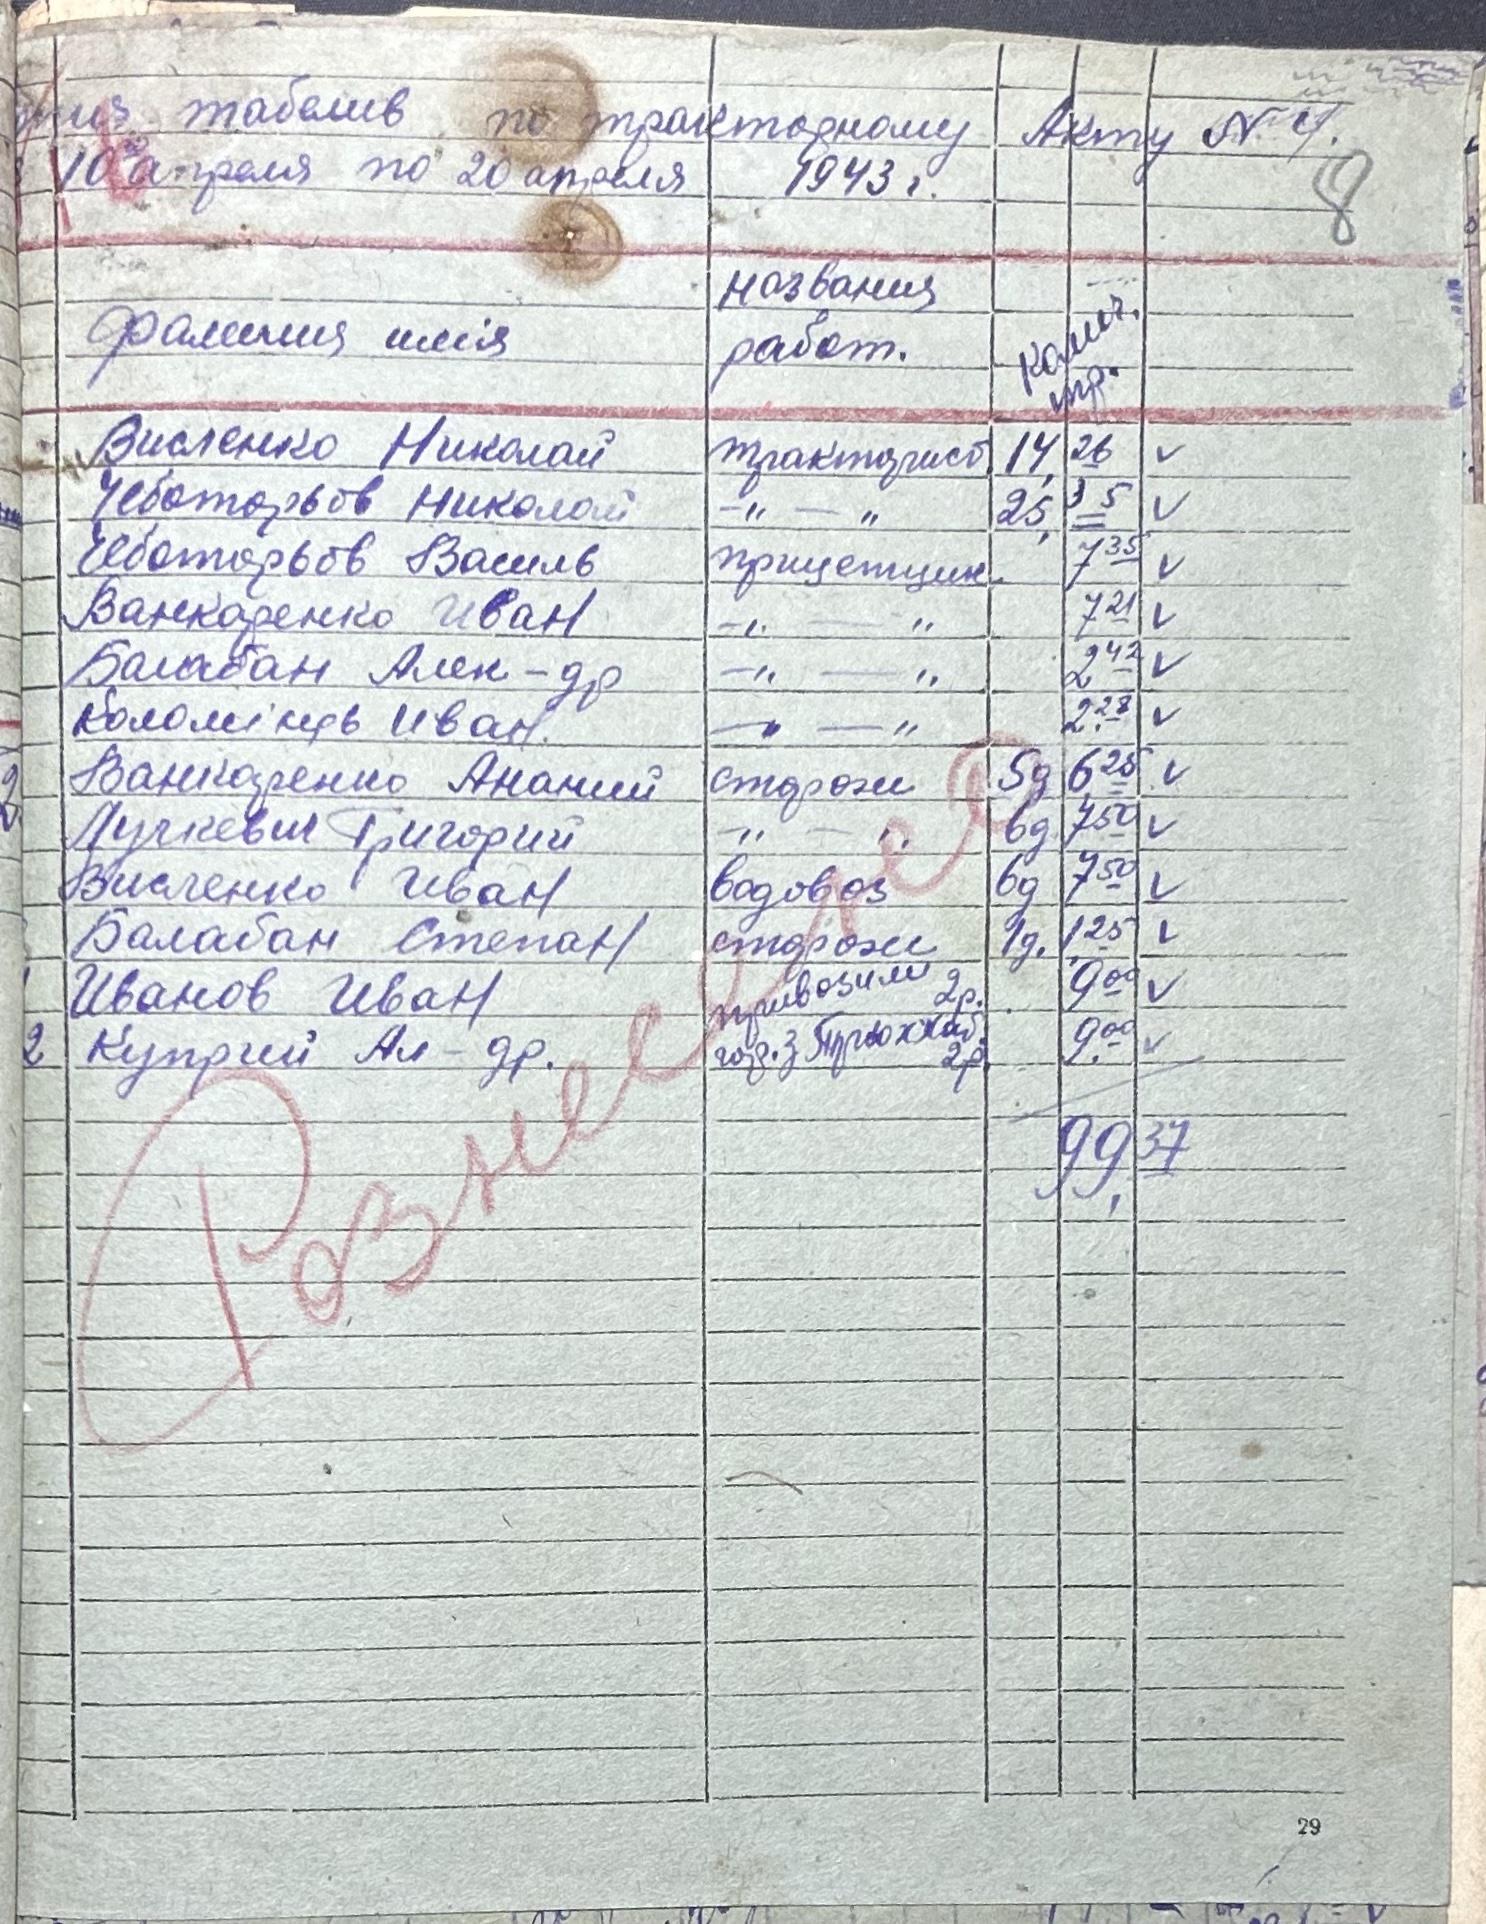 табелив по тракторному Акту № 4.
10го апреля по 20 апреля 1943 г.
8
Фамилия имія
названия работ.
Колич. тр.
Висленко Николай тракторист 14, 26 ✓
Чеботарьов Николай -"- — " 25, 35 ✓
Чеботарьов Василь прицепщик. 7 35 ✓
Ванкаренко Иван -"- — " 7 21 ✓
Балабан Алек-др -"- — " 2 42 ✓
Коломієць Иван. -"- — " 2.28 ✓
Ванкаренко Ананий сторож 5д 6 25 ✓
Лучкевич Григорий -"- — " 6д. 7 50 ✓
Висленко Иван водовоз 6д 7 50 ✓
Балабан Степан сторож 1д. 1 25 ✓
Иванов Иван привозили 2р. 9 00 ✓
2 Куприй Ал-др. гор. з 2р 9.00 ✓
99,37
Рознесено
29